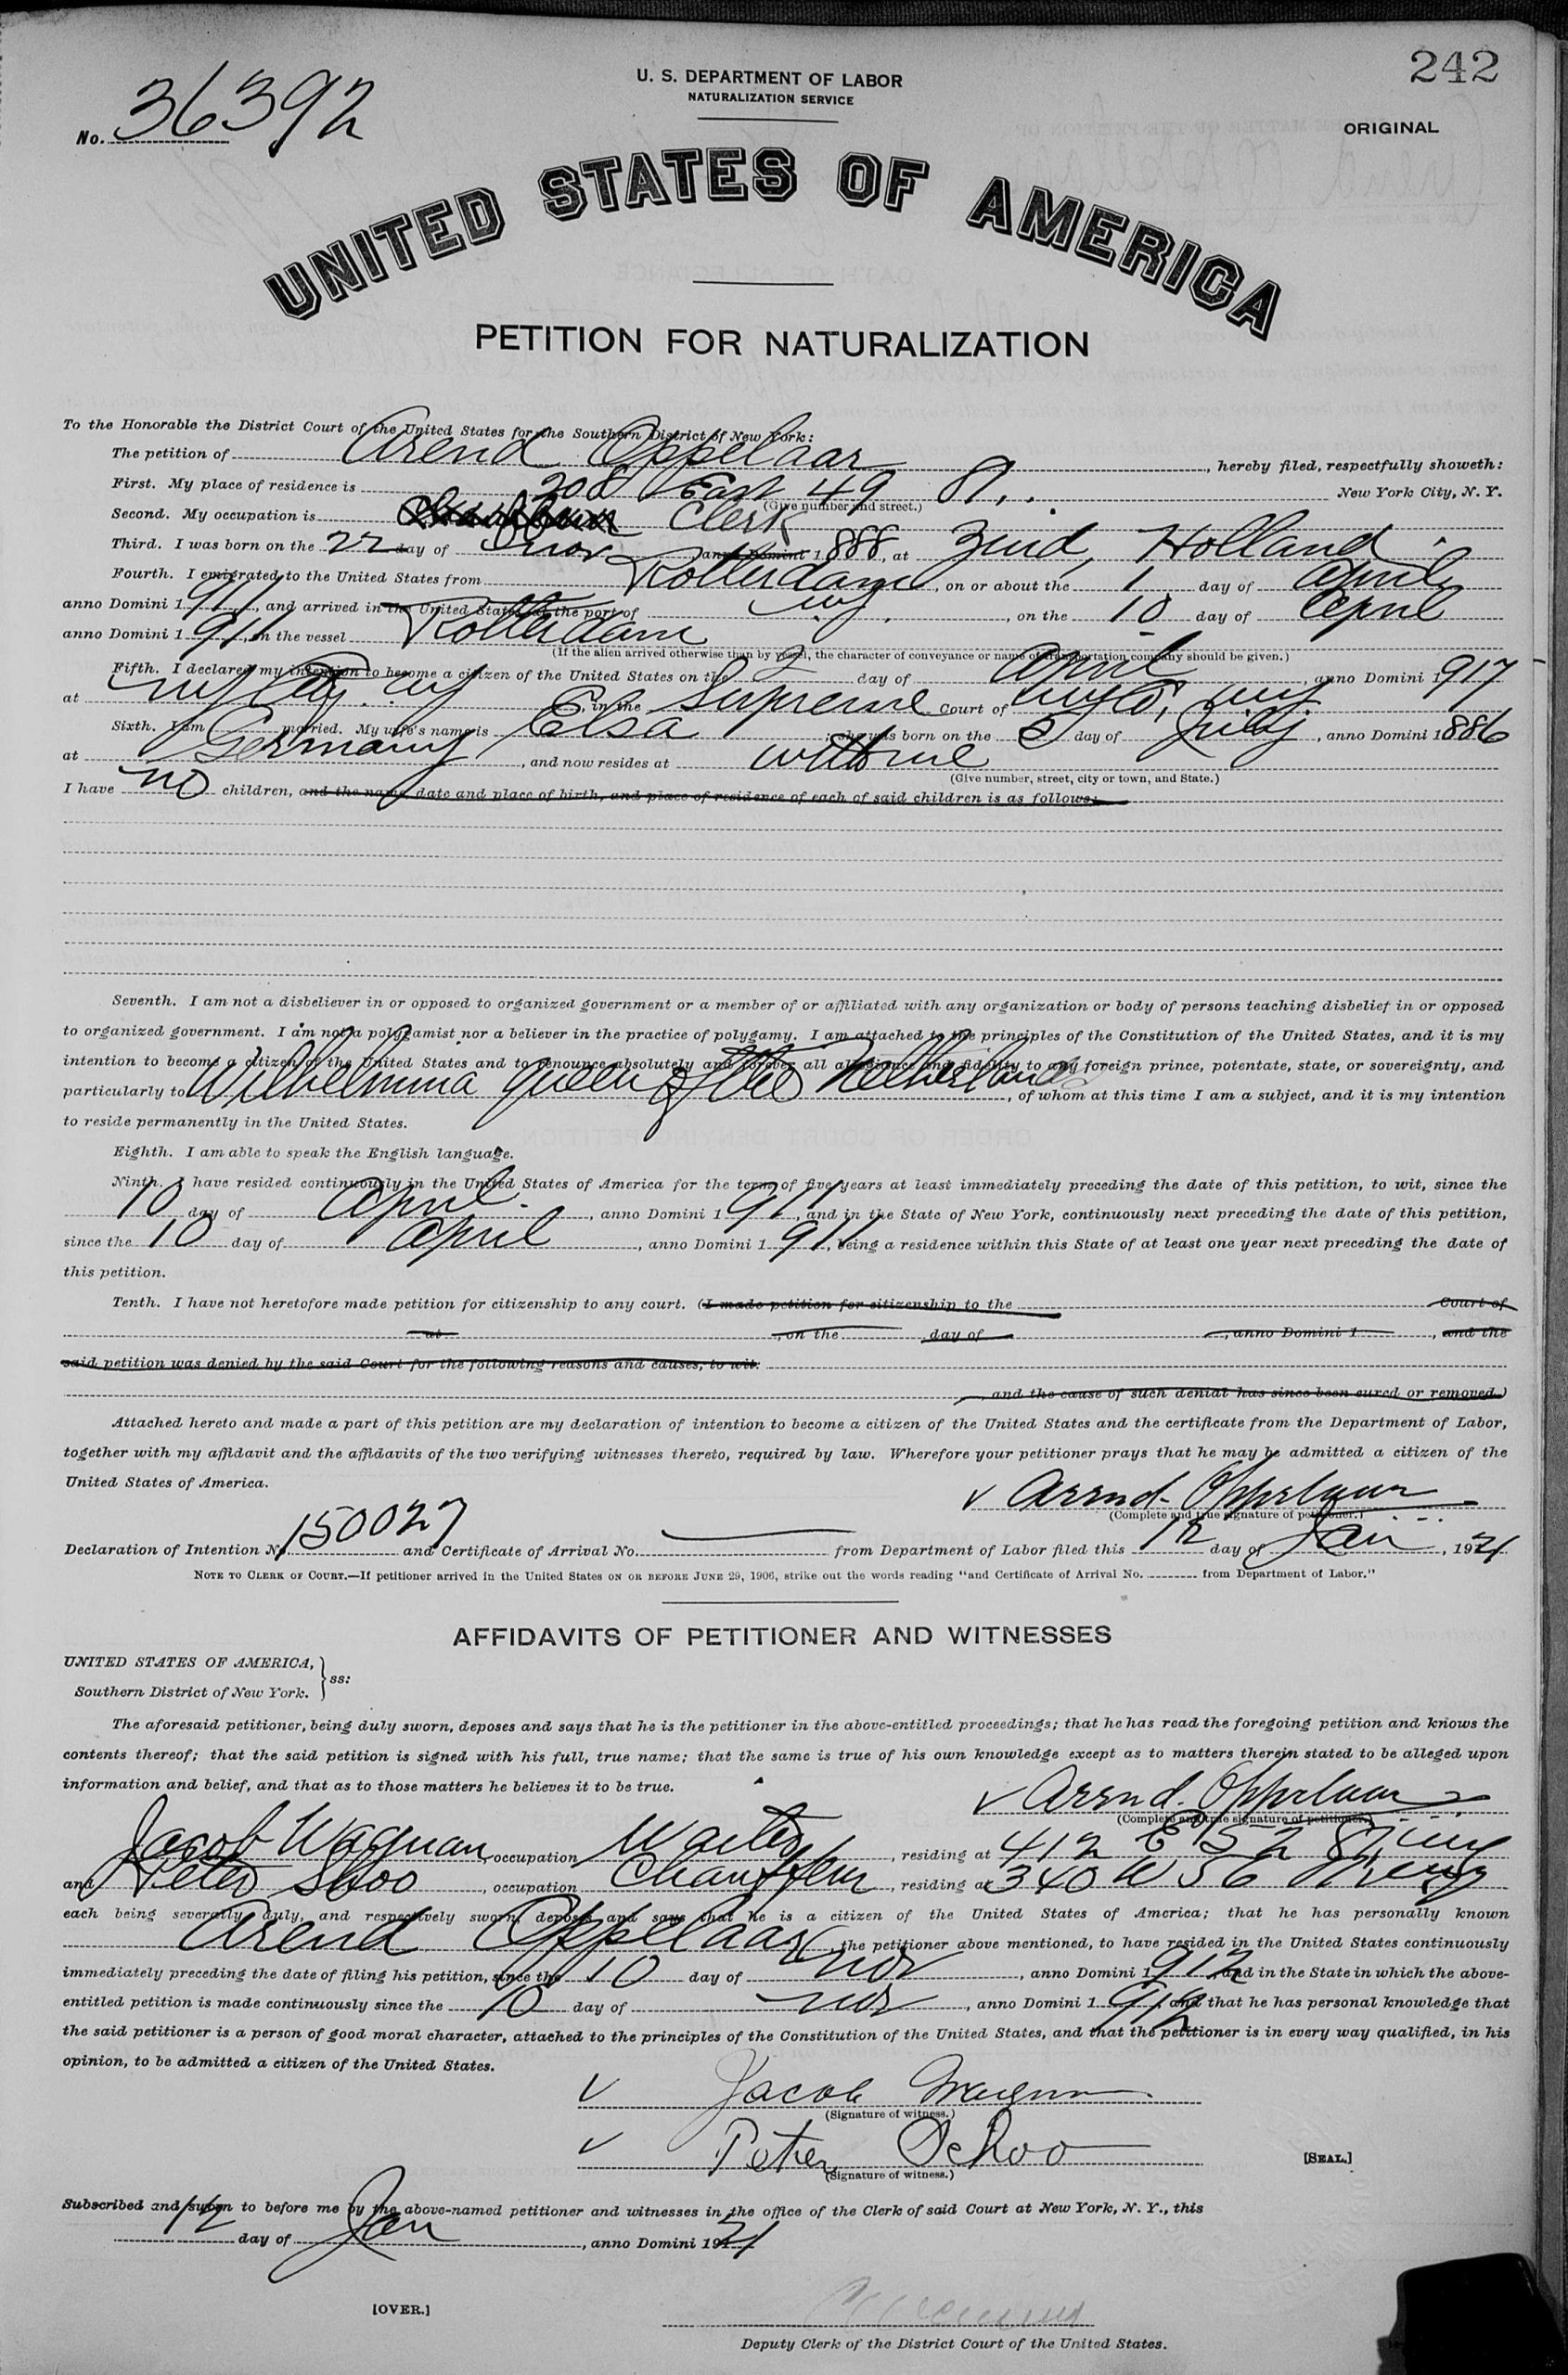 242
U. S. DEPARTMENT OF LABOR
NATURALIZATION SERVICE
No. 36392
ORIGINAL
UNITED STATES OF AMERICA
PETITION FOR NATURALIZATION
To the Honorable the District Court of the United States for the Southern District of New York:
The petition of Arend Oppelaar, hereby filed, respectfully showeth:
First. My place of residence is 208 East 49 St. New York City, N. Y.
(Give number and street.)
Second. My occupation is Clerk
Third. I was born on the 22 day of Nov. anno Domini 1888, at Zuid, Holland.
Fourth. I emigrated to the United States from Rotterdam, on or about the 1 day of April
anno Domini 1911, and arrived in the United States at the port of NY., on the 10 day of April
anno Domini 1911, on the vessel Rotterdam
(If the alien arrived otherwise than by vessel, the character of conveyance or name of transportation company should be given.)
Fifth. I declared my intention to become a citizen of the United States on the 2 day of April, anno Domini 1917
at NY City NY, in the Supreme Court of NY Co, NY
Sixth. I am married. My wife's name is Elsa; she was born on the day of July, anno Domini 1886
at Germany, and now resides at with me
(Give number, street, city or town, and State.)
I have no children, and the name, date and place of birth, and place of residence of each of said children is as follows:
Seventh. I am not a disbeliever in or opposed to organized government or a member of or affiliated with any organization or body of persons teaching disbelief in or opposed
to organized government. I am not a polygamist nor a believer in the practice of polygamy. I am attached to the principles of the Constitution of the United States, and it is my
intention to become a citizen of the United States and to renounce absolutely and forever all allegiance and fidelity to any foreign prince, potentate, state, or sovereignty, and
particularly to Wilhelmina Queen of the Netherlands, of whom at this time I am a subject, and it is my intention
to reside permanently in the United States.
Eighth. I am able to speak the English language.
Ninth. I have resided continuously in the United States of America for the term of five years at least immediately preceding the date of this petition, to wit, since the
10 day of April, anno Domini 1911, and in the State of New York, continuously next preceding the date of this petition,
since the 10 day of April, anno Domini 1911, being a residence within this State of at least one year next preceding the date of
this petition.
Tenth. I have not heretofore made petition for citizenship to any court. (I made petition for citizenship to the Court of
at , on the day of , anno Domini 1 , and the
said petition was denied by the said Court for the following reasons and causes, to wit:
, and the cause of such denial has since been cured or removed.)
Attached hereto and made a part of this petition are my declaration of intention to become a citizen of the United States and the certificate from the Department of Labor,
together with my affidavit and the affidavits of the two verifying witnesses thereto, required by law. Wherefore your petitioner prays that he may be admitted a citizen of the
United States of America.
Arend. Oppelaar
(Complete and true signature of petitioner.)
Declaration of Intention No. 150027 and Certificate of Arrival No. from Department of Labor filed this 12 day of Jan, 1921
NOTE TO CLERK OF COURT.—If petitioner arrived in the United States ON OR BEFORE JUNE 29, 1906, strike out the words reading "and Certificate of Arrival No. from Department of Labor."
AFFIDAVITS OF PETITIONER AND WITNESSES
UNITED STATES OF AMERICA,
Southern District of New York. } ss:
The aforesaid petitioner, being duly sworn, deposes and says that he is the petitioner in the above-entitled proceedings; that he has read the foregoing petition and knows the
contents thereof; that the said petition is signed with his full, true name; that the same is true of his own knowledge except as to matters therein stated to be alleged upon
information and belief, and that as to those matters he believes it to be true.
Arend. Oppelaar
(Complete and true signature of petitioner.)
Jacob Wagman, occupation Waiter, residing at 412 E 152 St NY
and Peter Schoo, occupation Chauffeur, residing at 340 W 56 St NY
each being severally, duly, and respectively sworn, deposes and says that he is a citizen of the United States of America; that he has personally known
Arend Oppelaar, the petitioner above mentioned, to have resided in the United States continuously
immediately preceding the date of filing his petition, since the 10 day of Nov, anno Domini 1912, and in the State in which the above-
entitled petition is made continuously since the 10 day of Nov, anno Domini 1912, and that he has personal knowledge that
the said petitioner is a person of good moral character, attached to the principles of the Constitution of the United States, and that the petitioner is in every way qualified, in his
opinion, to be admitted a citizen of the United States.
Jacob Wagman
(Signature of witness.)
Peter Schoo
(Signature of witness.)
[SEAL.]
Subscribed and sworn to before me by the above-named petitioner and witnesses in the office of the Clerk of said Court at New York, N. Y., this
12 day of Jan, anno Domini 1921
[OVER.]
Deputy Clerk of the District Court of the United States.